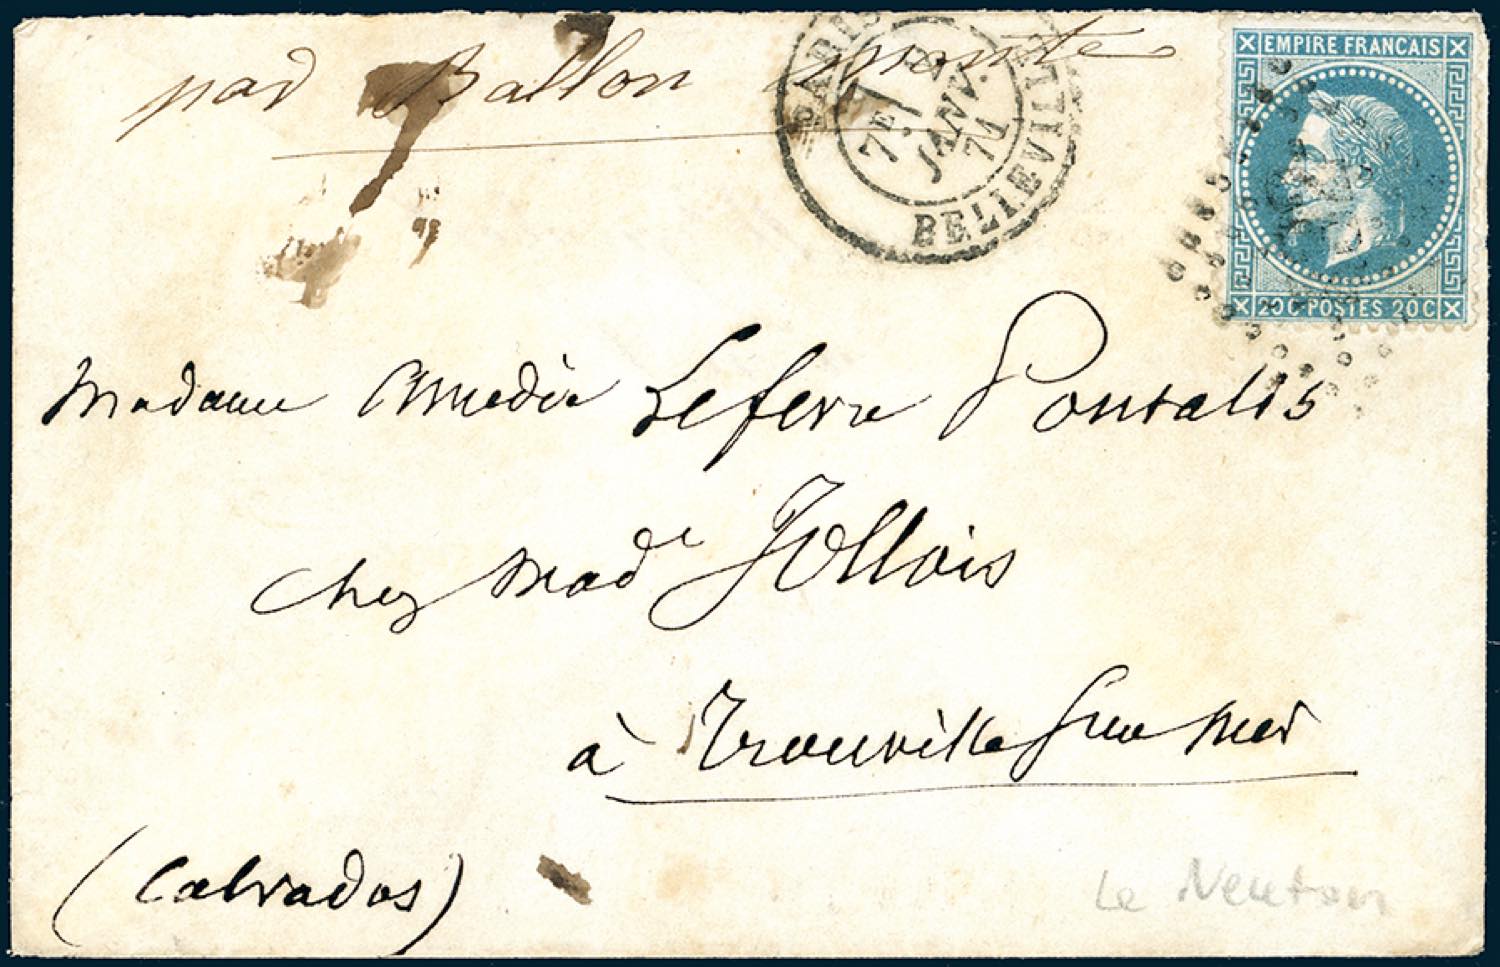 par Ballon monté
PARIS
7E
JANV.
71
BELLEVILLE
EMPIRE FRANCAIS
20 C POSTES 20 C
Madame Amédée Lefevre Pontalis
chez Made Jollois
à Trouville Sur mer
(Calvados)
Le Newton